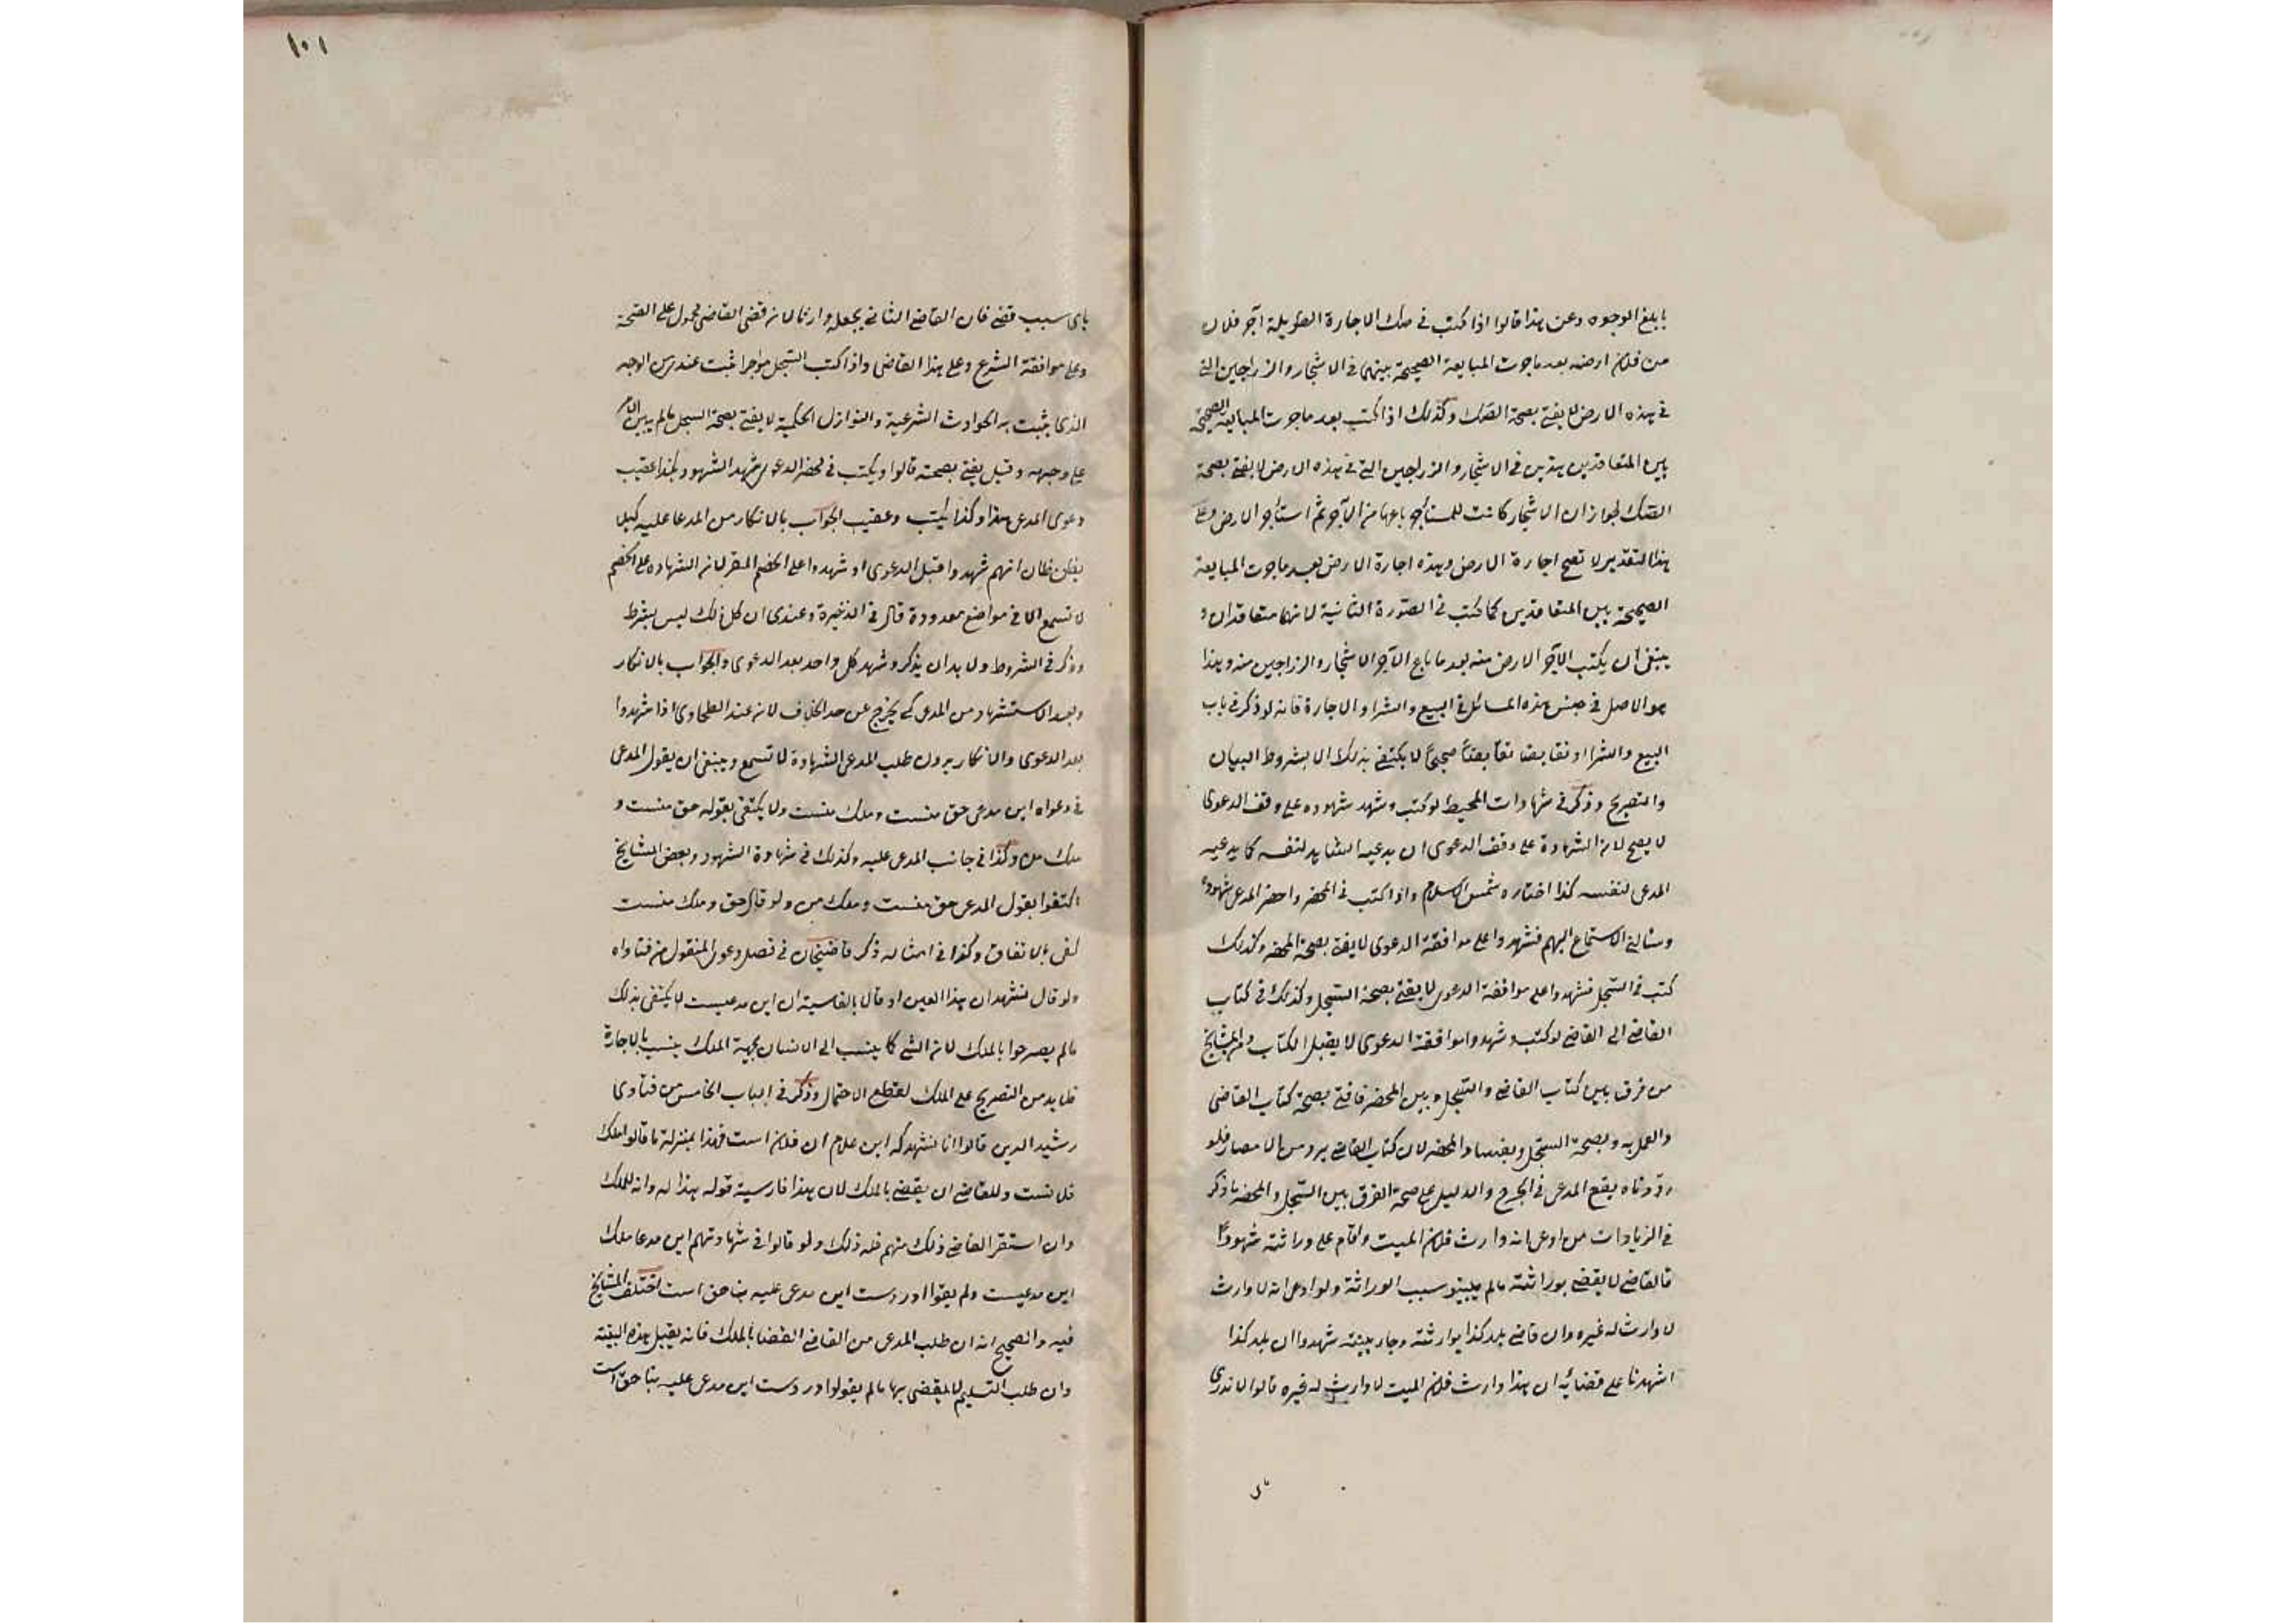 بابلغ الوجوه وعن هذا قالوا اذا كتب في صك الاجارة الطويلة آجر فلان
من فلان ارضه بعد ما جرت المبايعة الصحيحة بينهما في الاشجار والزراجين التي
في هذه الارض لا يفتى بصحة الصك وكذلك اذا كتب بعد ما جرت المبايعة الصحيحة
بين المتعاقدين هذين في الاشجار والزراجين التي في هذه الارض لا يفتى بصحة
الصك لجواز ان الاشجار كانت للمستأجر باعها من الآجر ثم استأجر الارض وعلى
هذا التقدير لا تصح اجارة الارض وهذه اجارة الارض بعد ما جرت المبايعة
الصحيحة بين المتعاقدين كما كتب في الصورة الثانية لانهما متعاقدان و
ينبغي ان يكتب الآجر الارض منه بعد ما باع الآجر الاشجار والزراجين منه وهذا
هو الاصل في جنس هذه المسائل في البيع والشرا والاجارة فانه لو ذكر في باب
البيع والشرا وتقابضا تقابضا صحيحا لا يكتفى بذلك الا بشروط البيان
والتصريح وذكر في شهادات المحيط لو كتب وشهد شهوده على وفق الدعوى
لا يصح لان الشهادة على وفق الدعوى ان يدعيه الشاهد لنفسه كما يدعيه
المدعي لنفسه كذا اختاره شمس الاسلام واذا كتب في المحضر واحضر المدعي شهوده
وسالني الاستماع اليهم فشهدوا على موافقة الدعوى لا يفتى بصحة المحضر وكذلك
كتب في السجل فشهدوا على موافقة الدعوى لا يفتى بصحة السجل وكذلك في كتاب
القاضي الى القاضي لو كتب وشهدوا موافقة الدعوى لا يقبل الكتاب ومن المشايخ
من فرق بين كتاب القاضي والسجل وبين المحضر فافتى بصحة كتاب القاضي
والعمل به وبصحة السجل وبفساد المحضر لان كتاب القاضي يرد من الامصار فلو
رددناه يقع المدعي في الحرج والدليل على صحة الفرق بين السجل والمحضر ما ذكر
في الزيادات من ادعى انه وارث فلان الميت واقام على وراثته شهودا
فالقاضي لا يقضي بوراثته ما لم يبينو سبب الوراثة ولو ادعى انه لا وارث
لا وارث له غيره وان قاضي بلد كذا بوارثته وجاء ببينة شهدوا ان بلد كذا
اشهدنا على قضائه ان هذا وارث فلان الميت لا وارث له غيره قالوا لا ندري
باى
١٠١
باى سبب قضى فان القاضي الثاني يجعله وارثا لان قضى القاضي محمول على الصحة
وعلى موافقة الشرع وعلى هذا القاضى واذا كتب السجل مؤجرا ثبت عندي من الوجه
الذى يثبت به الحوادث الشرعية والنوازل الحكمية لا يفتى بصحة السجل ما لم يبين الامر
على وجهه وقيل يفتى بصحته قالوا ويكتب في محضر الدعوى شهد الشهود بكذا عقيب
دعوى المدعي هذا وكذا يكتب وعقيب الجواب بالانكار من المدعا عليه كيلا
يظن ظان انهم شهدوا قبل الدعوى او شهدوا على الخصم المقر لان الشهادة على الخصم
لا تسمع الا في مواضع معدودة قال في الذخيرة وعندى ان كل ذلك ليس بشرط
وذكر في الشروط ولا بد ان يذكر وشهد كل واحد بعد الدعوى والجواب بالانكار
وبعد الاستشهاد من المدعي كي يخرج عن حد الخلاف لانه عند الطحاوى اذا شهدوا
بعد الدعوى والانكار بدون طلب المدعي الشهادة لا تسمع وينبغي ان يقول المدعى
في دعواه اين مدعى حق منست وملك منست ولا يكتفى بقوله حق منست و
ملك من وكذا في جانب المدعى عليه وكذلك في شهادة الشهود وبعض المشايخ
اكتفوا بقول المدعي حق منست وملك من ولو قال حق وملك منست
كفى بالاتفاق وكذا في امثاله ذكر قاضيخان في فصل دعوى المنقول من فتاواه
ولو قال نشهد ان هذا العين او قال بالفارسية ان اين مدعيست لا يكتفى بذلك
ما لم يصرحوا بالملك لان الشي كما ينسب الى الانسان بجهة الملك ينسب بالاجارة
فلا بد من التصريح على الملك لقطع الاحتمال وذكر في الباب الخامس من فتاوى
رشيد الدين قالوا انا نشهد كه اين غلام ان فلان است فهذا بمنزلة ما قالوا ملك
فلانست وللقاضي ان يقضى بالملك لان هذا فارسية قوله هذا له وانه للملك
وان استفسر القاضي ذلك منهم فله ذلك ولو قالوا في شهادتهم اين مدعا ملك
اين مدعيست ولم يقولوا در دست اين مدعى عليه بناحق است اختلف المشايخ
فيه والصحيح انه ان طلب المدعي من القاضي القضا بالملك فانه يقبل هذه البينة
وان طلب التسليم لا يقضى بها ما لم يقولوا در دست اين مدعى عليه بناحق است